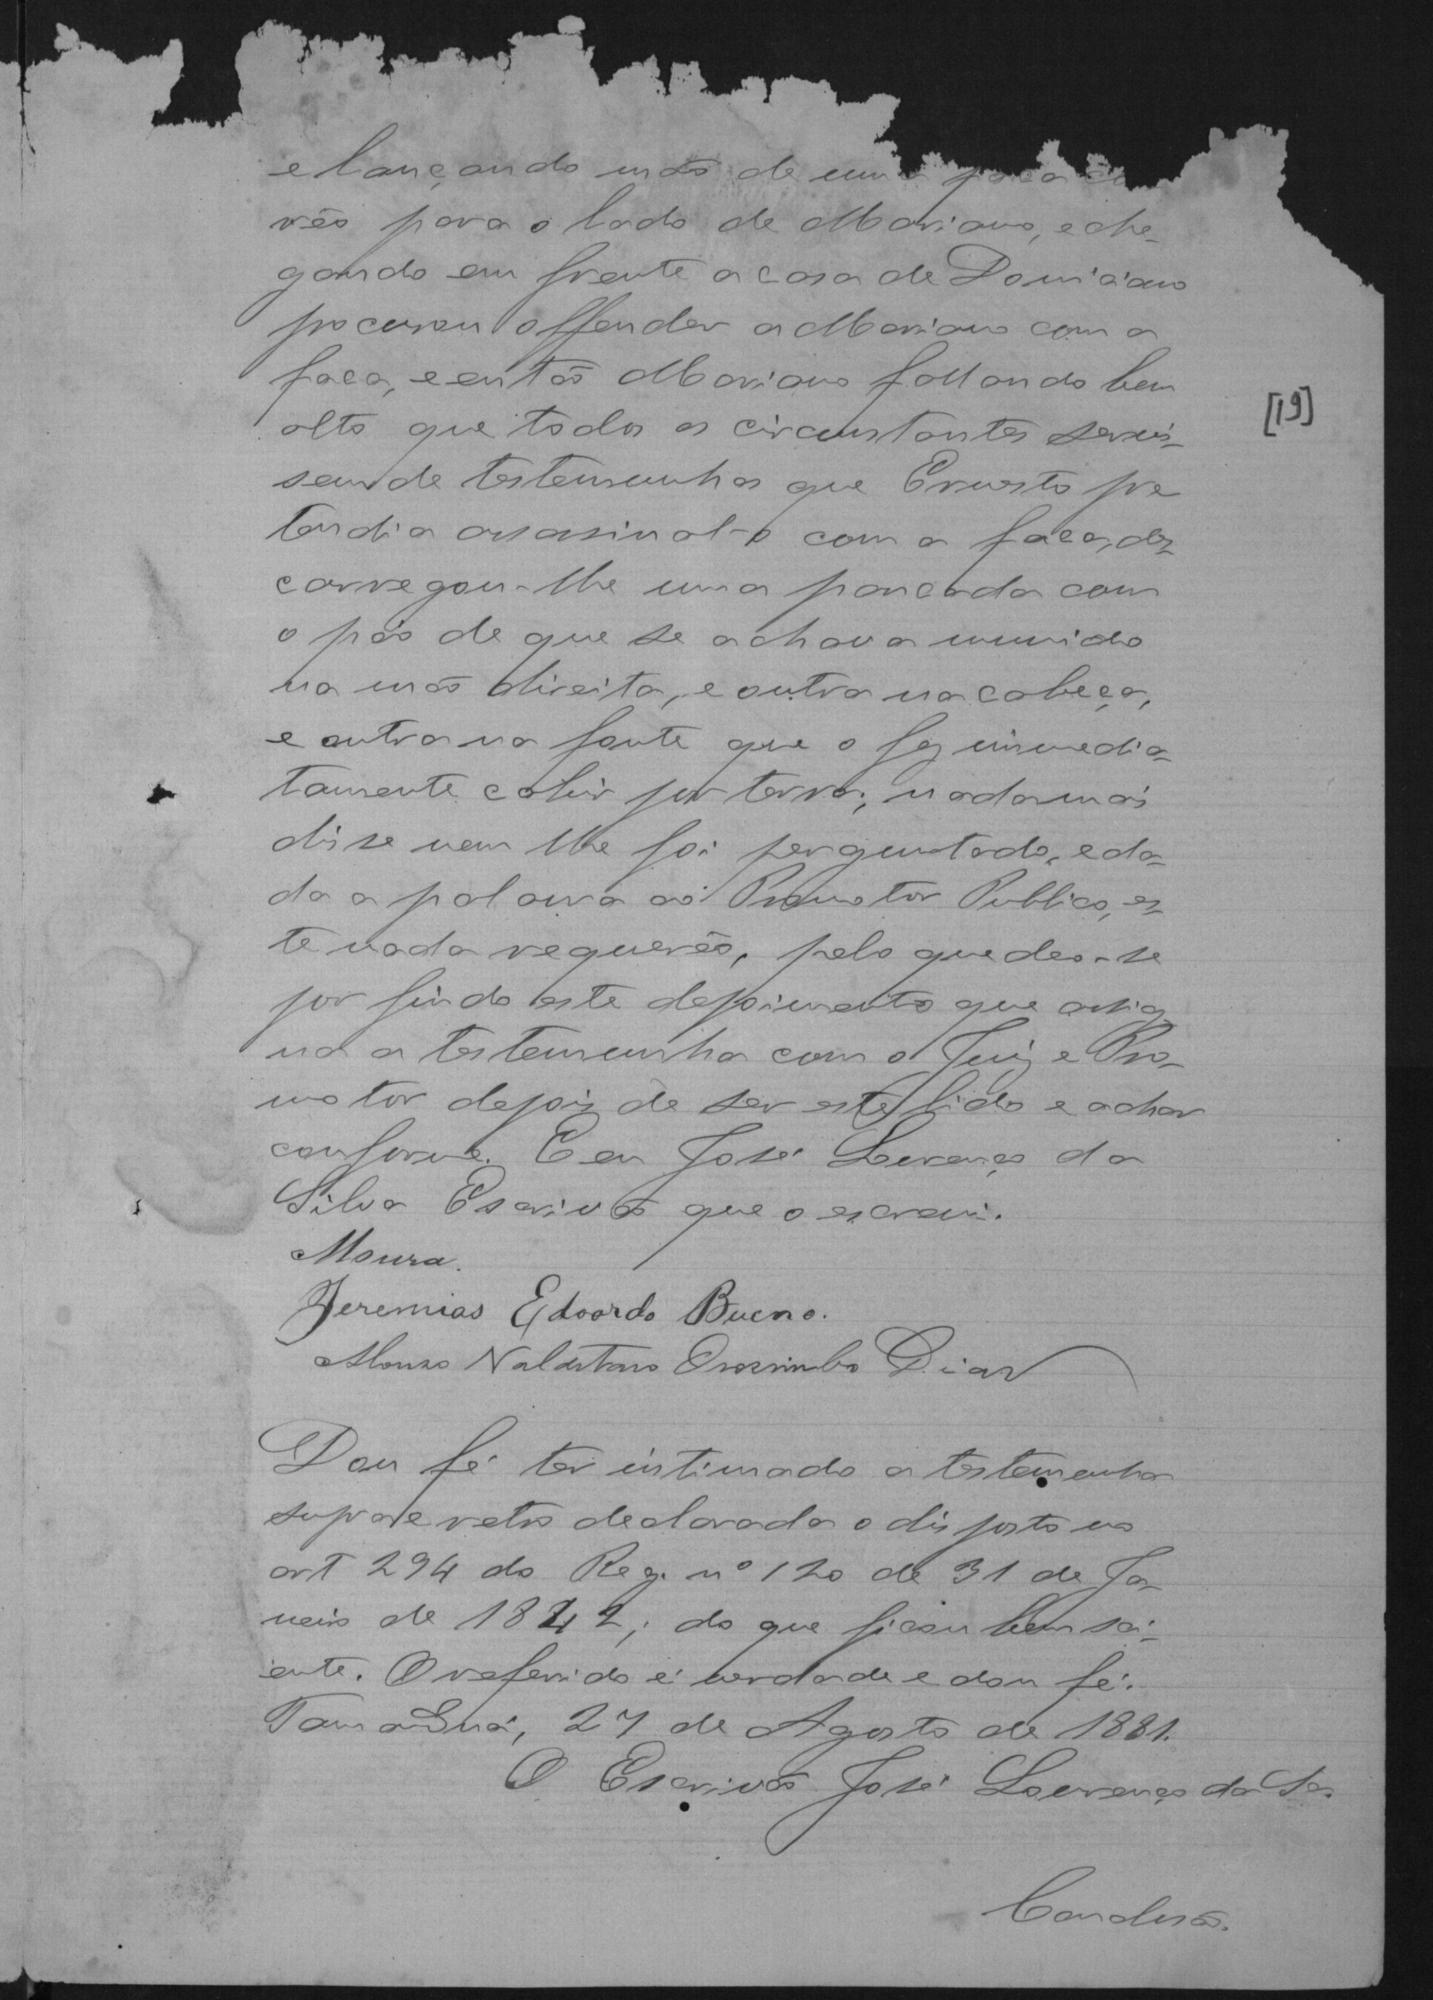 e lançando mão de uma faca cor
rêo para o lado de Mariano, e che-
gando em frente a casa de Domiciano
procurou offender a Mariano com a
faca, e então Mariano fallando bem
alto que todos os circunstantes servis-
sem de testemunhas que Ernesto pre
tendia assasinal-o com a faca, des-
carregou-lhe uma pancada com
o páo de que se achava munido
na mão direita, e outra na cabeça,
e outra na fonte que o fez immedia-
tamente cahir por terra; nada mais
disse nem lhe foi perguntado, e da-
da a palavra aó Promotor Publico, es-
te nada requerêo, pelo que deo-se
por findo este depoimento que assig-
na a testemunha com o Juiz e Pro-
motor depois de ser este lido e achar
conforme. E eu José Lourenço da
Silva Escrivão que o escrevi.
Moura.
Jeremias Edoardo Bueno.
Dias
[19]
Dou fé ter intimado a testemunha
supra e retro declarada o disposto no
art 294 do Reg. nº 120 de 31 de Ja-
neiro de 1842; do que ficou bem sci-
ente. O referido é verdade e dou fé.
27 de Agosto de 1881.
O Escrivão José Lourenço da Sa.
Conclusão.